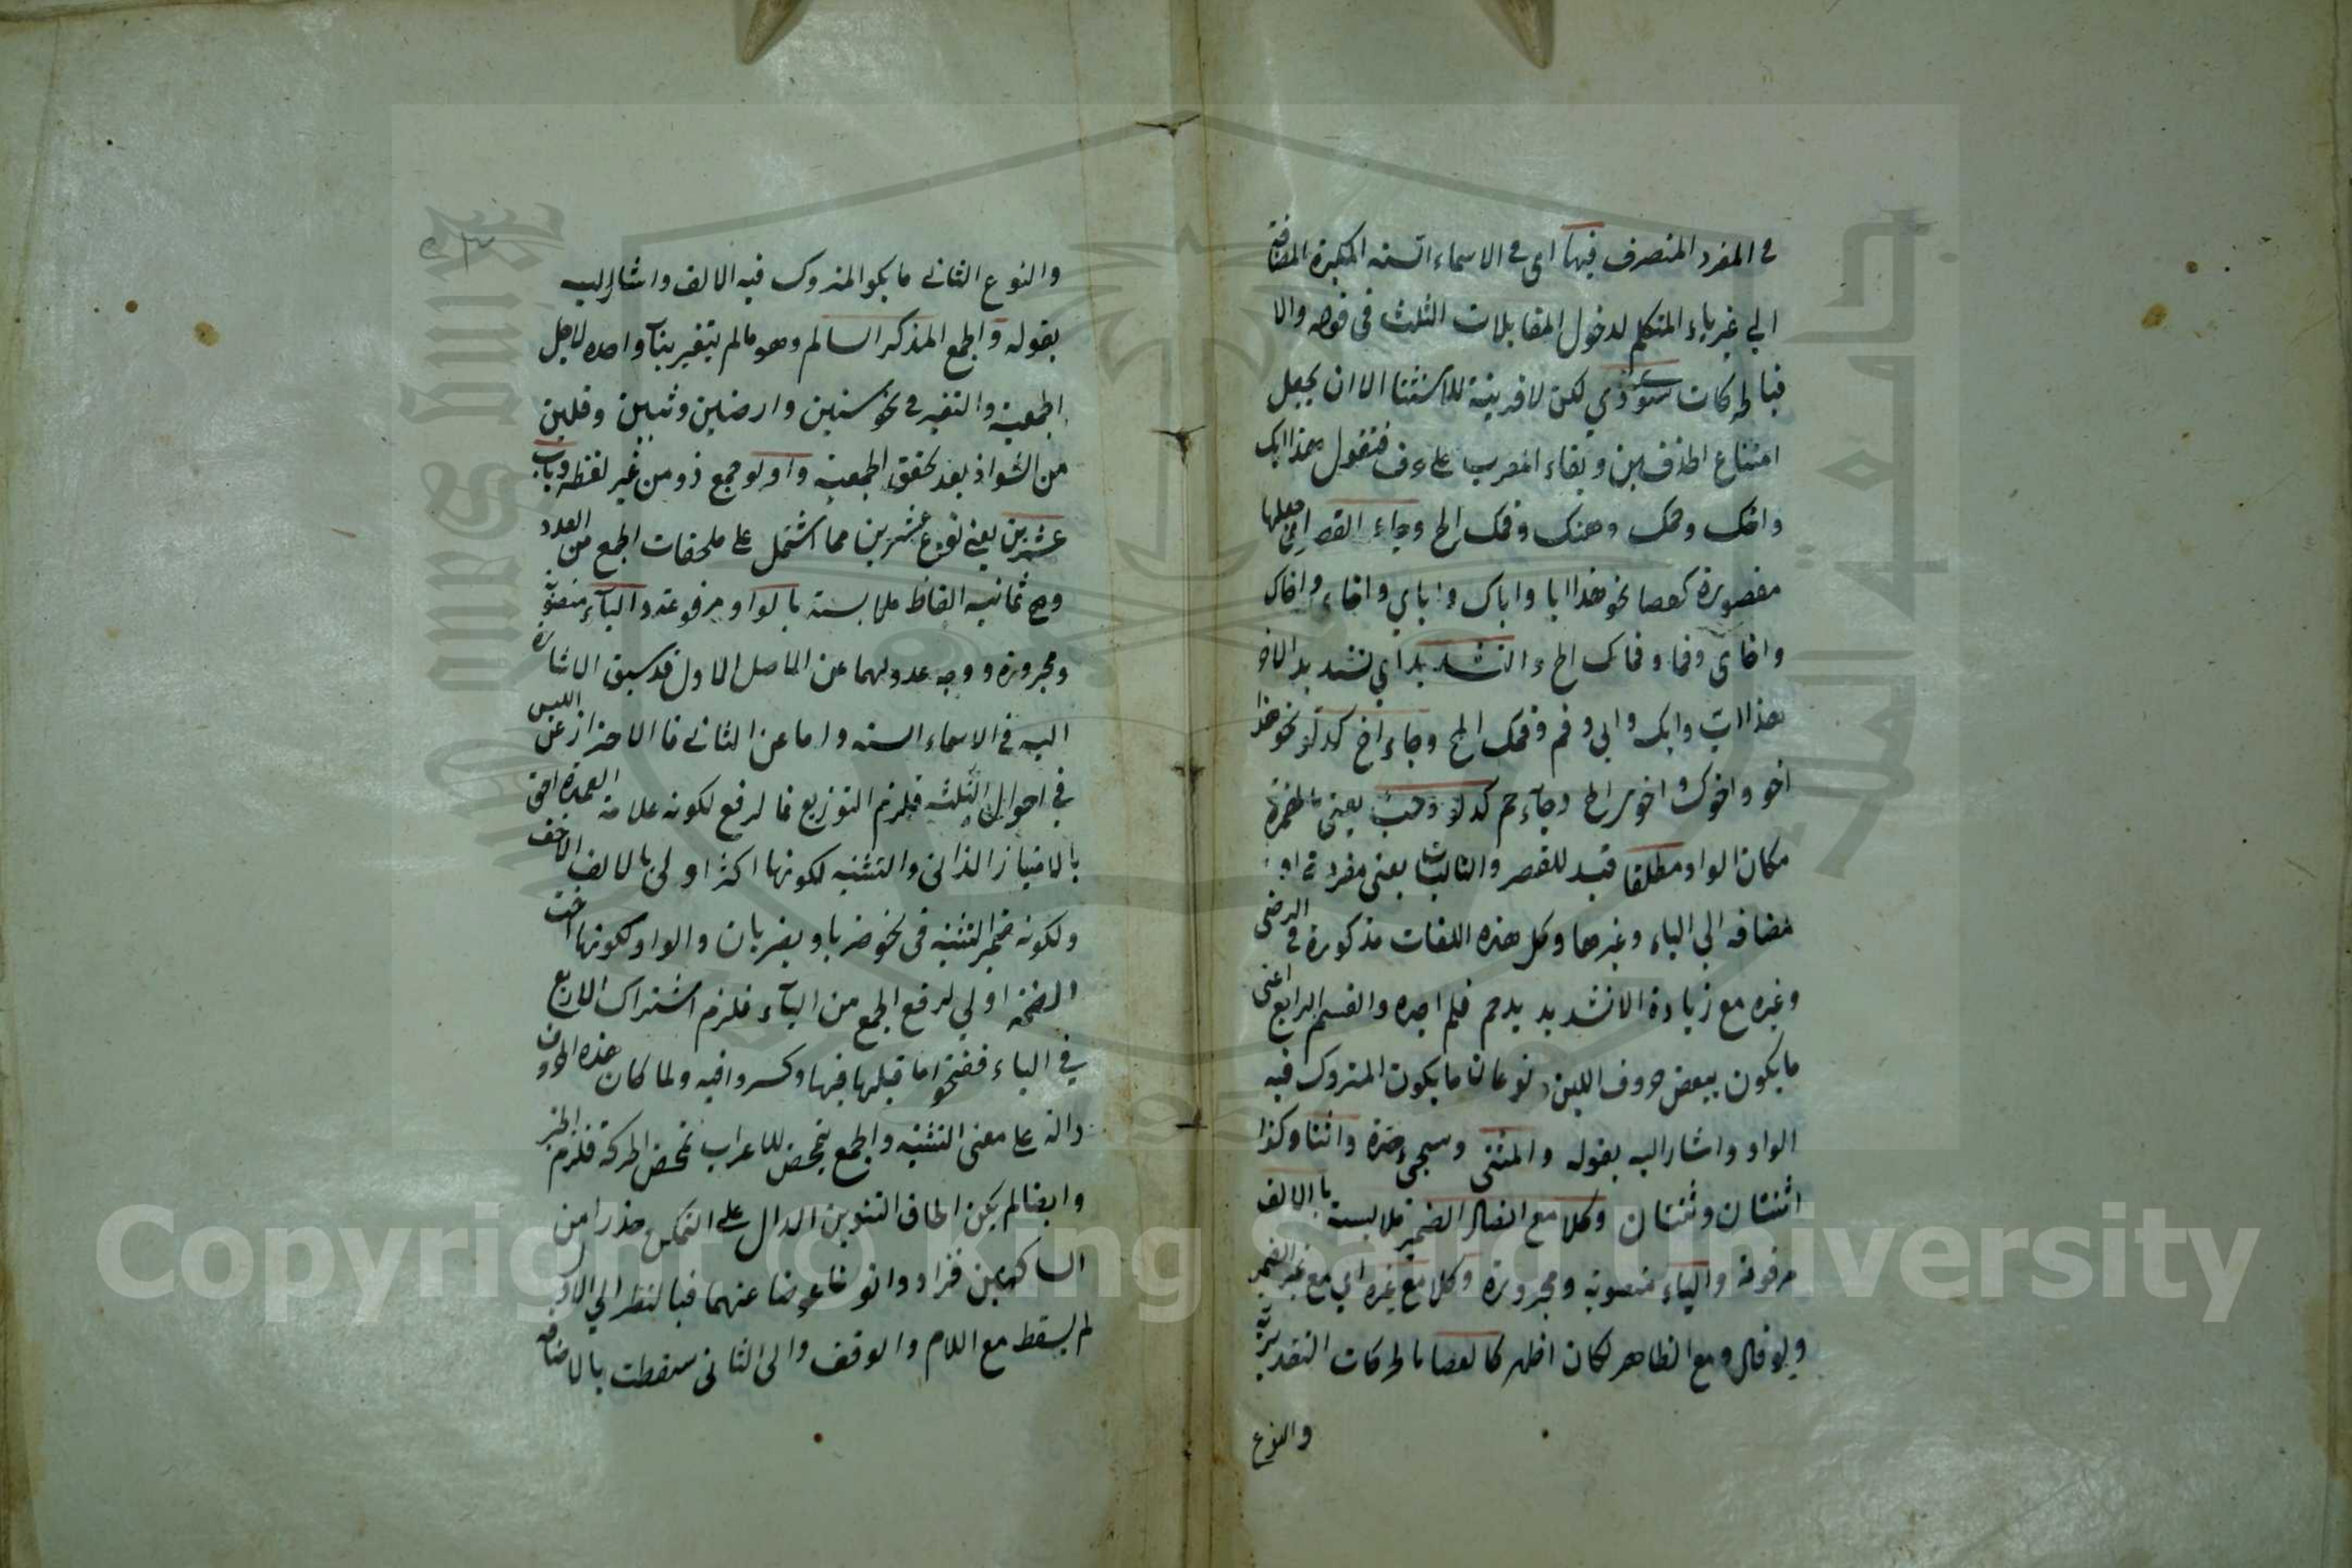 في المفرد المنصرف فيها اى في الاسماء الستة المكبرة المضافة
الي غير ياء المتكلم لدخول المقابلات الثلث في فوه والا
فبالحركات سوى ذي لكن لا قرينة للاستثنا الا ان يجعل
امتناع الحذف بين وبقاء المعرب على حرف فتقول هذا ابك
واخك وحمك وهنك وفمك الخ وجاء القصر اى جعلها
مقصورة كعصا نحو هذا ابا واباك واباي واخا واخاك
واخاي وفما وفماك الخ والتشديد اي تشديد الاخر
هذا ابّ وابك وابي وفم وفمك الخ وجاء اخ كدلو نحو هذا
اخو واخوك واخوى الخ وجاء حم كدلو وخبْ يعنى بالهمزة
مكان الواو مطلقا قيد للقصر والثالث يعنى مفردة او
مضافه الي الياء وغيرها وكل هذه اللغات مذكورة في الرضى
وغيره مع زيادة الا تشديد حم فلم اجده والقسم الرابع اعنى
ما يكون ببعض حروف اللين نوعان ما يكون المتروك فيه
الواو واشار اليه بقوله والمثنى وسيجئ حده واثنا وكذا
اثنتان وثنتان وكلا مع اتصال الضمير ملابسة بالالف
مرفوعة والياء منصوبة ومجرورة وكلا مع غيره اي مع غير الضمير
ولو قال ومع الظاهر لكان اظهر كالعصا بالحركات التقديرية
والنوع
والنوع الثاني ما يكو المتروك فيه الالف واشار اليه
بقوله والجمع المذكر السالم وهو ما لم يتغير بناء واحده لاجل
الجمعية والتغير في نحو سنين وارضين وثبين وقلين
من الشواذ بعد تحقق الجمعية واولو جمع ذو من غير لفظه وباب
عشرين يعني نوع عشرين مما اشتمل على ملحقات الجمع من العدد
وهي ثمانية الفاظ ملابسة بالواو مرفوعة والياء منصوبة
ومجرورة ووجه عدولهما عن الاصل الاول قد سبق الاشارة
اليه في الاسماء الستة واما عن الثاني فالاحتراز عن اللبس
في احوال الثلثه فلزم التوزيع فالرفع لكونه علامة العمدة احق
بالامتياز الذاتى والتثنيه لكونها اكثر اولى بالالف الاخف
ولكونه ضمير التثنيه في نحو ضربا ويضربان والواو لكونها اخت
الضمة اولي لرفع الجمع من الياء فلزم اشتراك الاربع
في الياء ففتحوا ما قبلها فيها وكسروا فيه ولما كان هذه الحروف
دالة على معنى التثنيه والجمع لم يتمحض للاعراب تمحض الحركة فلزم
وايضا لم يكن الحاق التنوين الدال على التمكن حذرا من
الساكنين فزادوا نونا عوضا عنهما فبالنظر الي الاول
لم يسقط مع اللام والوقف والى الثاني سقطت بالاضافه